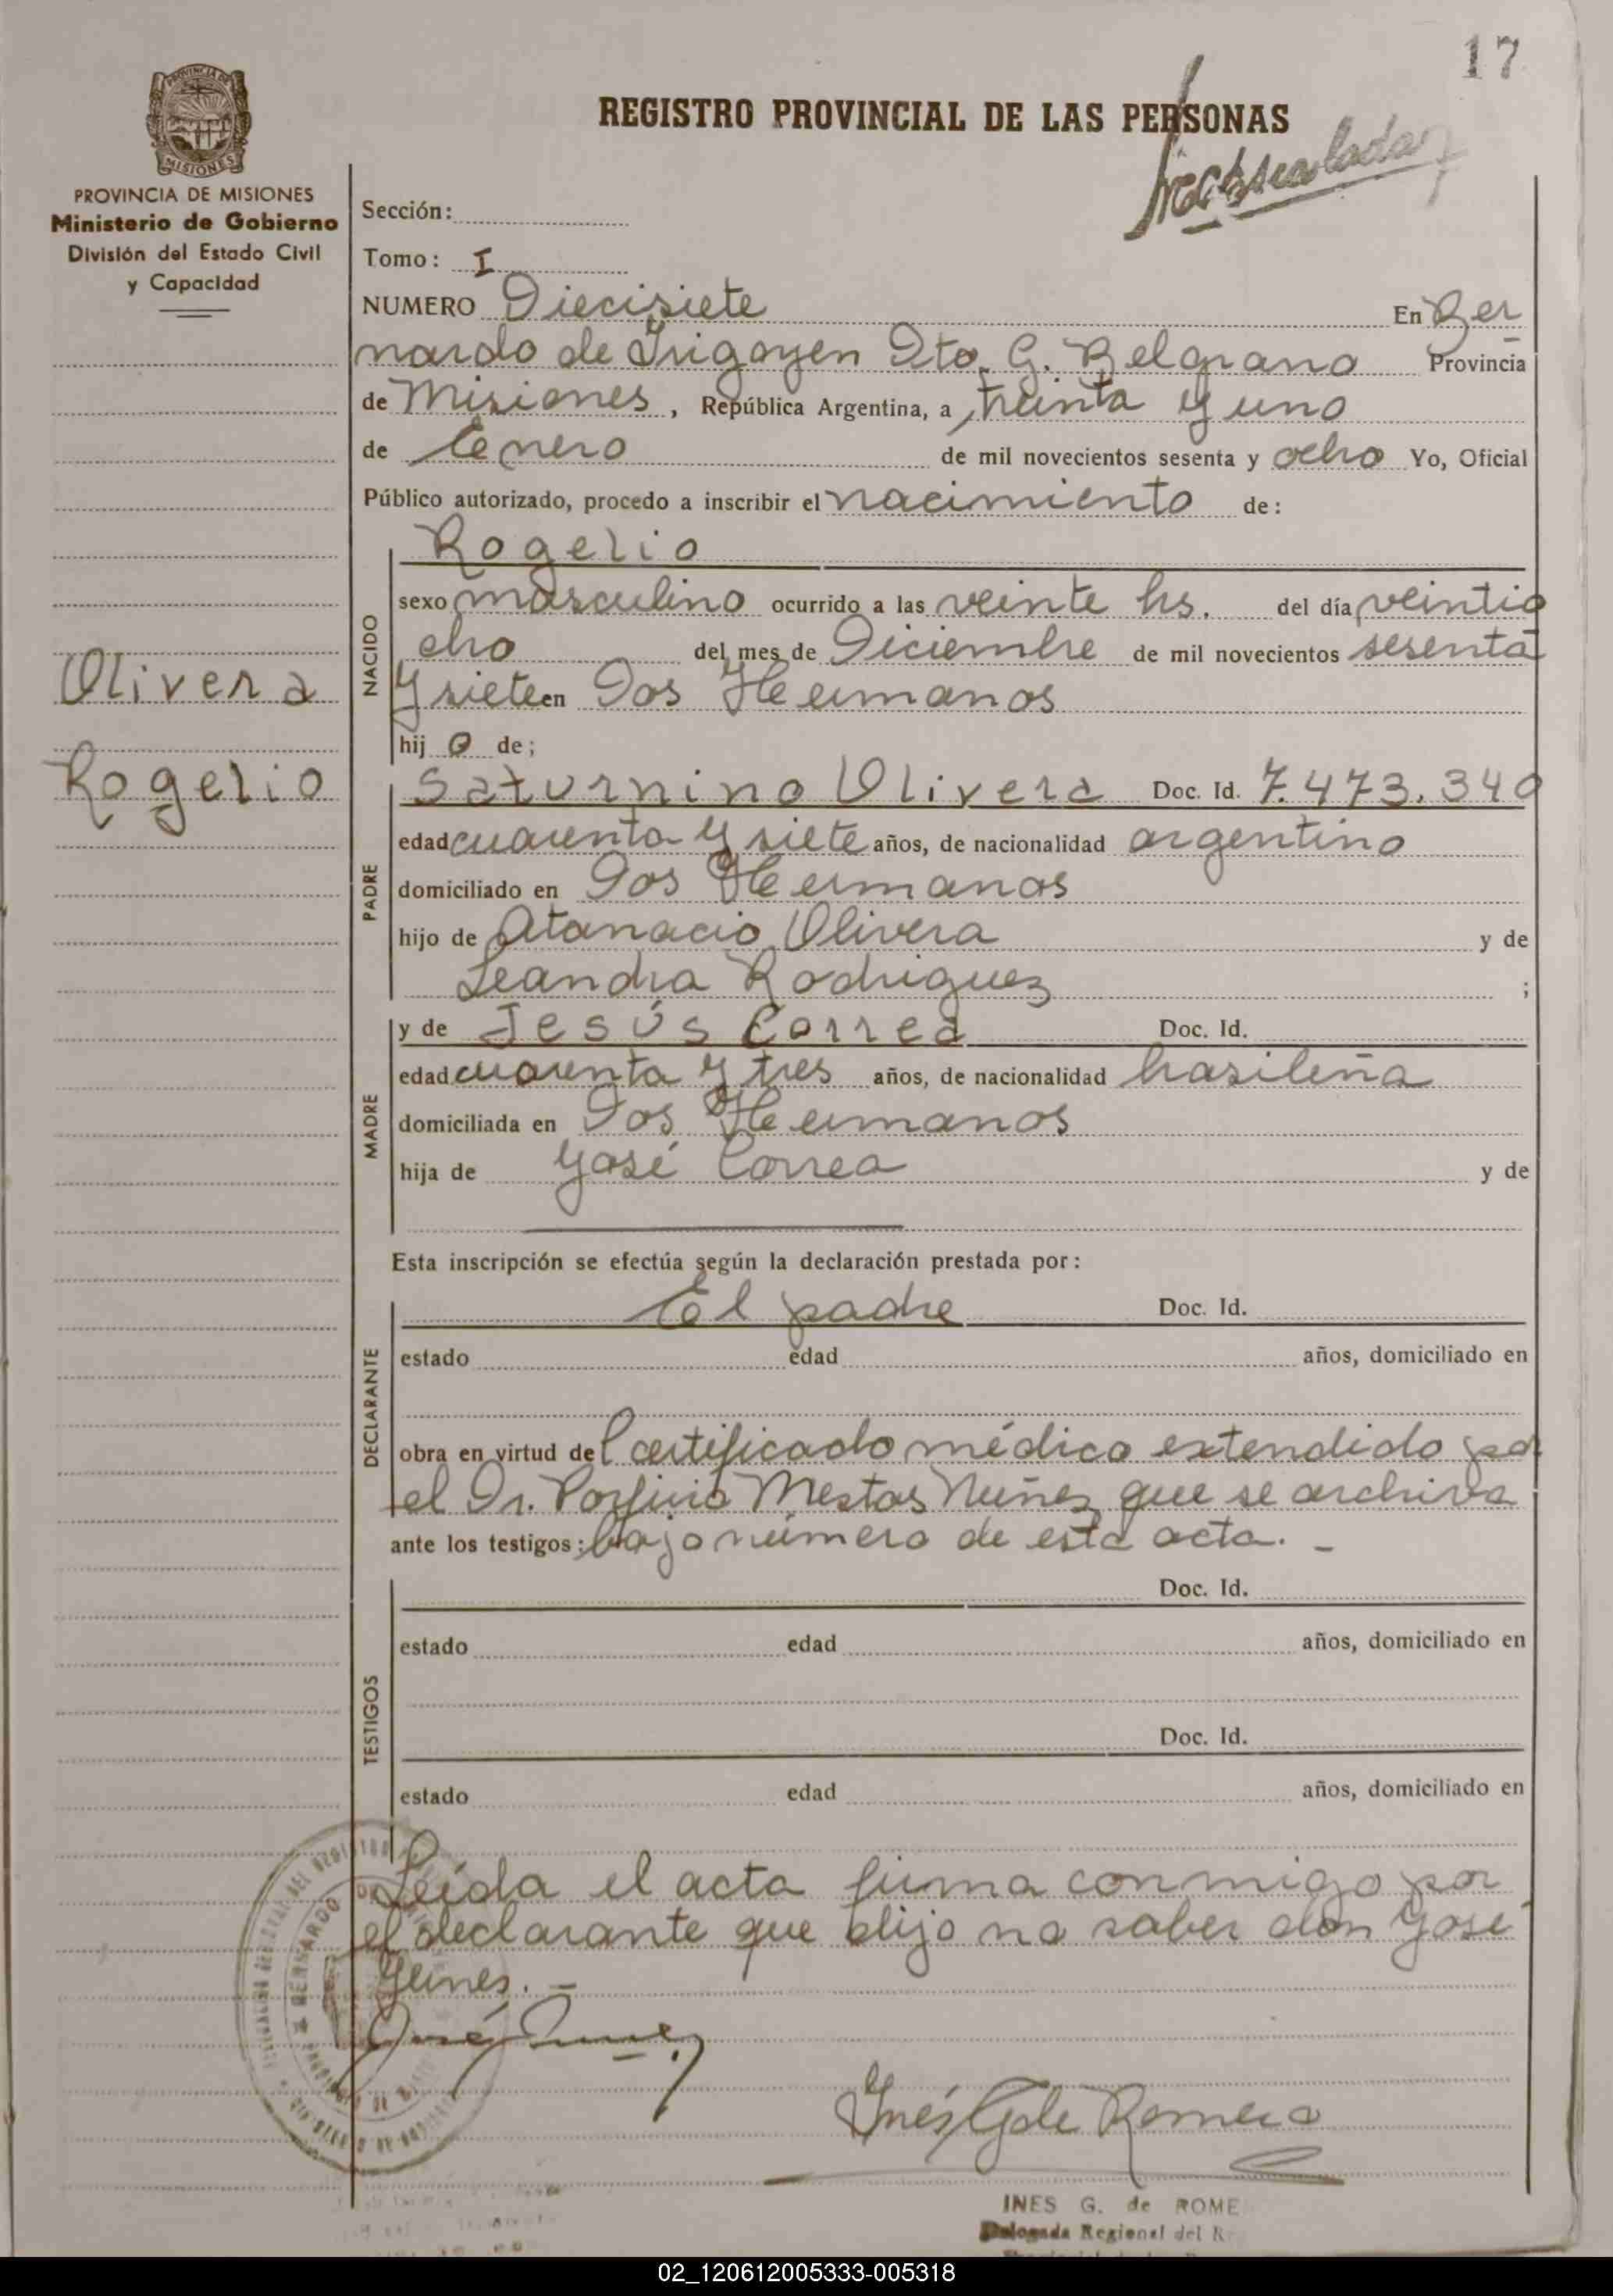 17
REGISTRO PROVINCIAL DE LAS PERSONAS
PROVINCIA DE
MISIONES
PROVINCIA DE MISIONES
Ministerio de Gobierno
División del Estado Civil
y Capacidad
Sección:
Tomo: I
NUMERO Diecisiete En Ber
nardo de Irigoyen Dto. G. Belgrano Provincia
de Misiones, República Argentina, a treinta y uno
de Enero de mil novecientos sesenta y ocho Yo, Oficial
Público autorizado, procedo a inscribir el nacimiento de:
Rogelio
NACIDO
sexo masculino ocurrido a las veinte hs. del día veintio
cho del mes de Diciembre de mil novecientos sesenta
y siete en Dos Hermanos
hijo de;
Olivera
Rogelio
PADRE
Saturnino Olivera Doc. Id. 7.473.340
edad cuarenta y siete años, de nacionalidad argentino
domiciliado en Dos Hermanos
hijo de Atanacio Olivera y de
Leandra Rodriguez ;
MADRE
y de Jesús Correa Doc. Id.
edad cuarenta y tres años, de nacionalidad brasileña
domiciliada en Dos Hermanos
hija de José Correa y de
Esta inscripción se efectúa según la declaración prestada por:
DECLARANTE
El padre Doc. Id.
estado edad años, domiciliado en
obra en virtud del certificado médico extendido por
el Dr. Porfirio Mestas Nuñez que se archiva
ante los testigos: bajo número de esta acta. -
TESTIGOS
Doc. Id.
estado edad años, domiciliado en
Doc. Id.
estado edad años, domiciliado en
Leída el acta firma conmigo por
el declarante que dijo no saber don José
INES G. de ROME
Delegada Regional del R
02_120612005333-005318